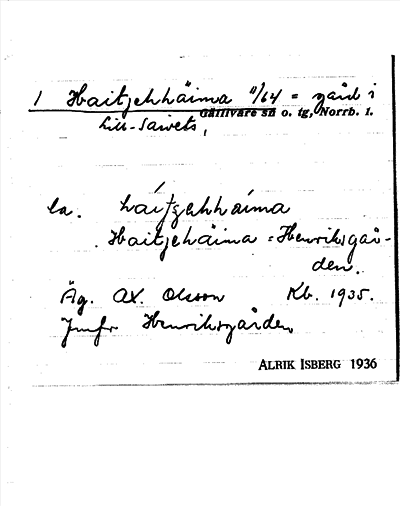 1 Haitjehhäima 11/64 = gård i
Gällivare sn o. tg, Norrb. l.
Lill-Saivets,
la. háitjehháima
Haitjehäima = Henriksgår-
den.
Äg. Ax. Olsson Kb. 1935.
Jmfr Henriksgården
ALRIK ISBERG 1936